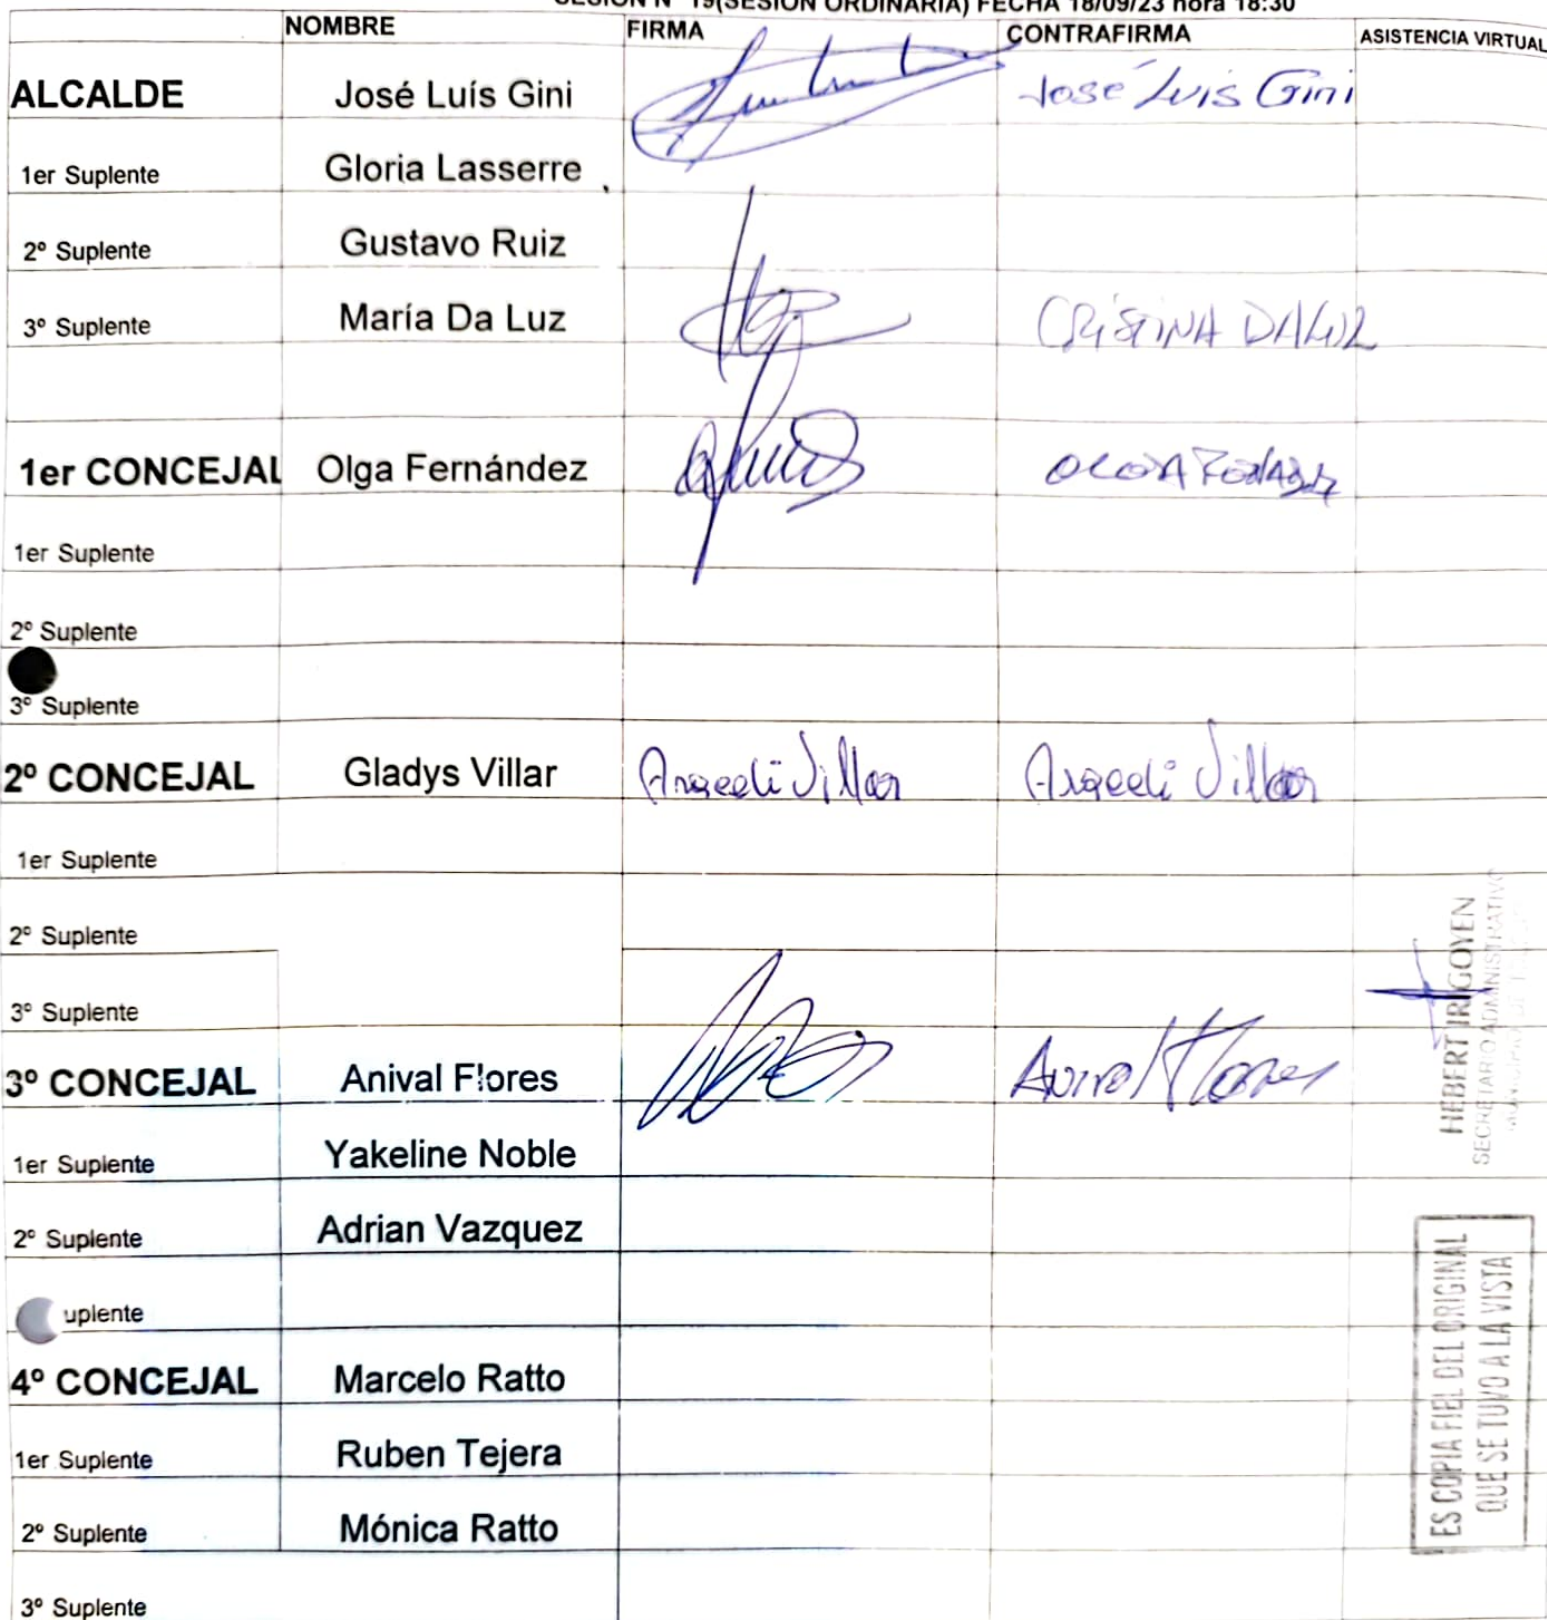 SESIÓN Nº 19(SESION ORDINARIA) FECHA 18/09/23 hora 18:30
NOMBRE FIRMA CONTRAFIRMA ASISTENCIA VIRTUAL
ALCALDE José Luís Gini José Luis Gini
1er Suplente Gloria Lasserre
2º Suplente Gustavo Ruiz
3º Suplente María Da Luz CRISTINA DALUZ
1er CONCEJAL Olga Fernández
1er Suplente
2º Suplente
3º Suplente
2º CONCEJAL Gladys Villar Araceli Villar Araceli Villar
1er Suplente
2º Suplente
3º Suplente
3º CONCEJAL Anival Flores Anival Flores
1er Suplente Yakeline Noble
2º Suplente Adrian Vazquez
uplente
4º CONCEJAL Marcelo Ratto
1er Suplente Ruben Tejera
2º Suplente Mónica Ratto
3º Suplente
HEBERT IRIGOYEN
SECRETARIO ADMINISTRATIVO
ES COPIA FIEL DEL ORIGINAL
QUE SE TUVO A LA VISTA